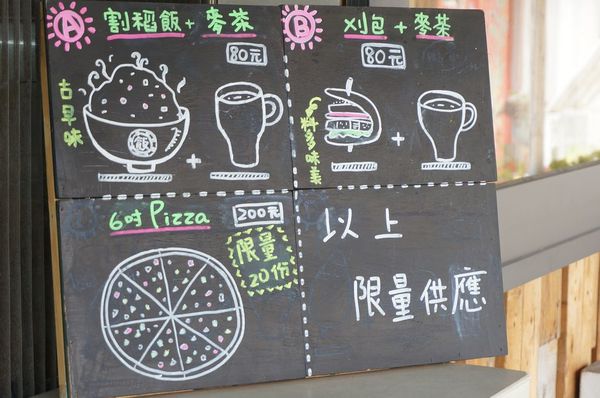 A 割稻飯 + 麥茶
80元
古早味
飯
+
B 刈包 + 麥茶
80元
料多味美
+
6吋 Pizza
200元
限量
20份
以上
限量供應